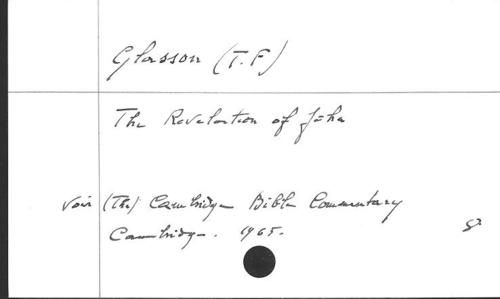 Glasson (T.F)
The Revelation of John
voir (The) Cambridge Bible Commentary
Cambridge. 1965. 8°